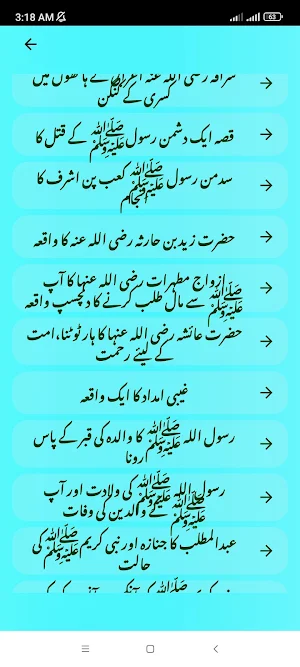 3:18 AM
63
سراقہ رضی اللہ عنہ
کسریٰ کے کنگن
قصہ ایک دشمن رسول ﷺ کے قتل کا
سدمن رسول ﷺ کعب بن اشرف کا
انجام
حضرت زید بن حارثہ رضی اللہ عنہ کا واقعہ
ازواج مطہرات رضی اللہ عنہا کا آپ
ﷺ سے مال طلب کرنے کا دلچسپ واقعہ
حضرت عائشہ رضی اللہ عنہا کا ہار ٹوٹنا،امت
کے لیئے رحمت
غیبی امداد کا ایک واقعہ
رسول اللہ ﷺ کا والدہ کی قبر کے پاس
رونا
رسول اللہ ﷺ کی ولادت اور آپ
ﷺ کے والدین کی وفات
عبدالمطلب کا جنازہ اور نبی کریم ﷺ کی
حالت